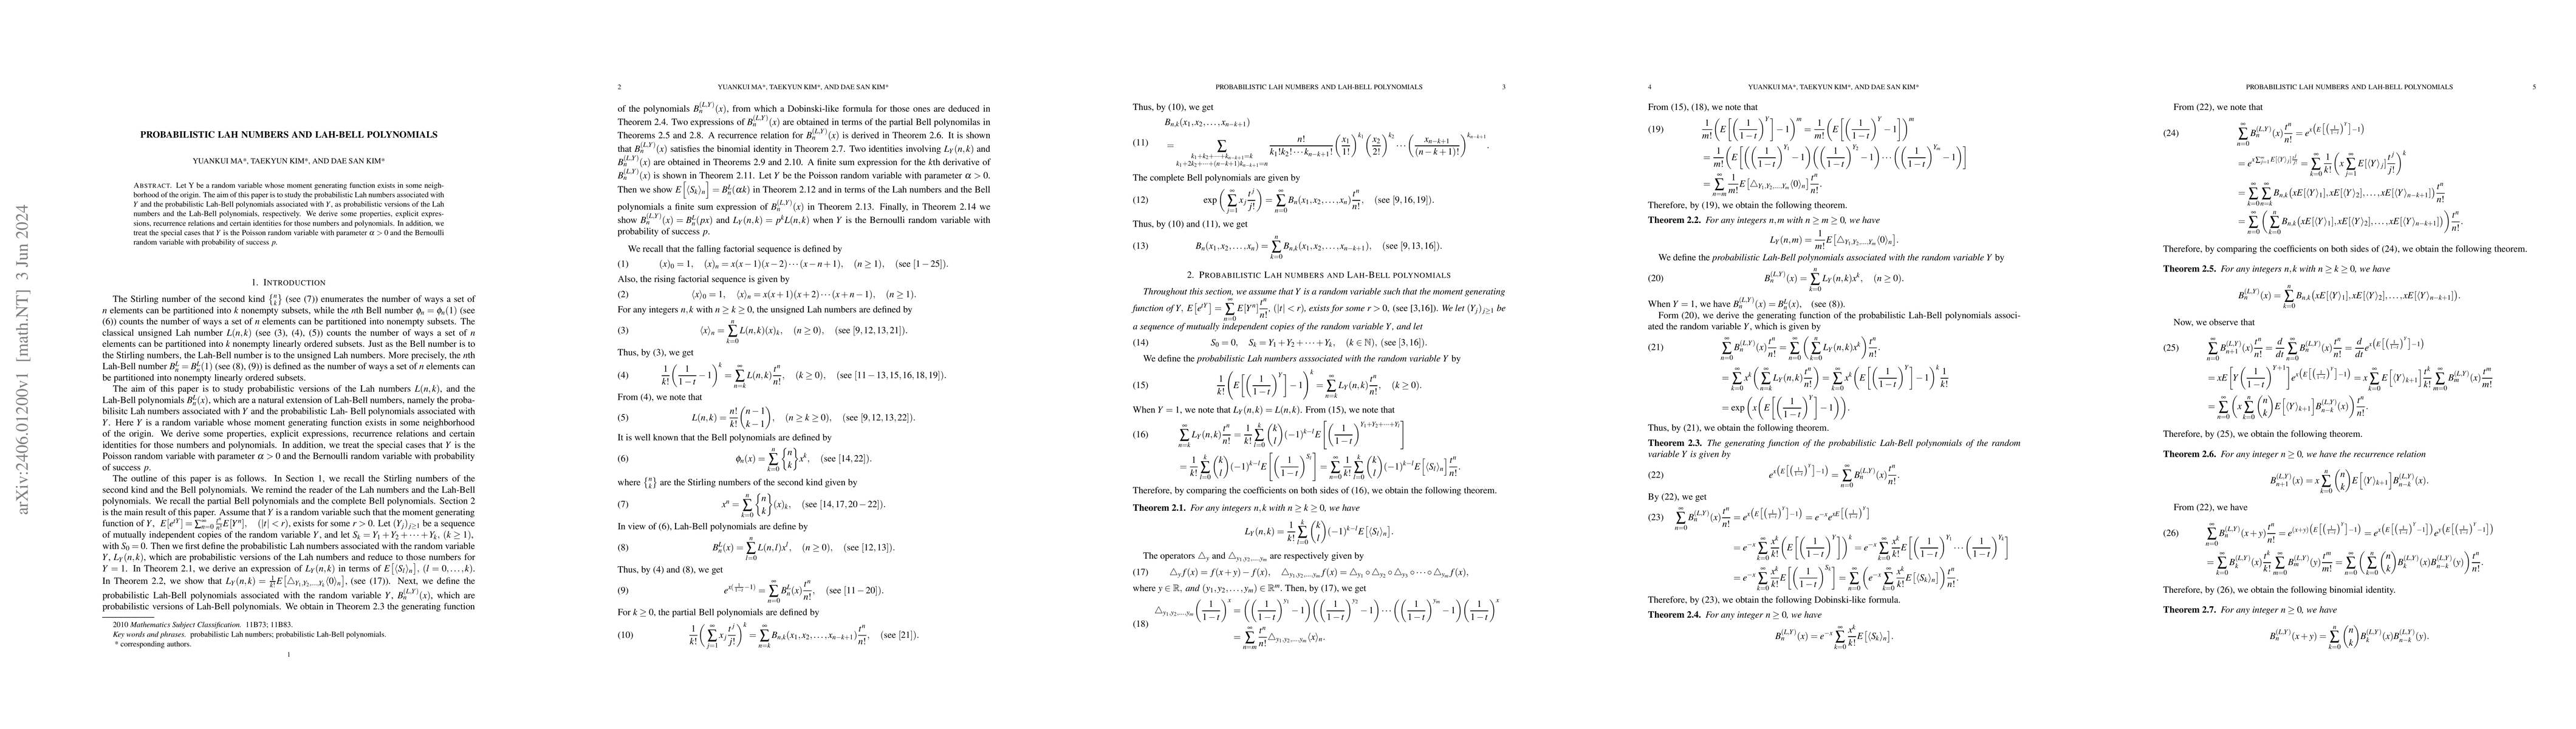 arXiv:2406.01200v1 [math.NT] 3 Jun 2024
PROBABILISTIC LAH NUMBERS AND LAH-BELL POLYNOMIALS
YUANKUI MA*, TAEKYUN KIM*, AND DAE SAN KIM*
ABSTRACT. Let Y be a random variable whose moment generating function exists in some neigh-
borhood of the origin. The aim of this paper is to study the probabilistic Lah numbers associated with
Y and the probabilistic Lah-Bell polynomials associated with Y, as probabilistic versions of the Lah
numbers and the Lah-Bell polynomials, respectively. We derive some properties, explicit expres-
sions, recurrence relations and certain identities for those numbers and polynomials. In addition, we
treat the special cases that Y is the Poisson random variable with parameter α > 0 and the Bernoulli
random variable with probability of success p.
1. INTRODUCTION
The Stirling number of the second kind {n \brace k} (see (7)) enumerates the number of ways a set of
n elements can be partitioned into k nonempty subsets, while the nth Bell number ϕ_n = ϕ_n(1) (see
(6)) counts the number of ways a set of n elements can be partitioned into nonempty subsets. The
classical unsigned Lah number L(n,k) (see (3), (4), (5)) counts the number of ways a set of n
elements can be partitioned into k nonempty linearly ordered subsets. Just as the Bell number is to
the Stirling numbers, the Lah-Bell number is to the unsigned Lah numbers. More precisely, the nth
Lah-Bell number B_n^L = B_n^L(1) (see (8), (9)) is defined as the number of ways a set of n elements can
be partitioned into nonempty linearly ordered subsets.
The aim of this paper is to study probabilistic versions of the Lah numbers L(n,k), and the
Lah-Bell polynomials B_n^L(x), which are a natural extension of Lah-Bell numbers, namely the proba-
bilisitc Lah numbers associated with Y and the probabilistic Lah- Bell polynomials associated with
Y. Here Y is a random variable whose moment generating function exists in some neighborhood
of the origin. We derive some properties, explicit expressions, recurrence relations and certain
identities for those numbers and polynomials. In addition, we treat the special cases that Y is the
Poisson random variable with parameter α > 0 and the Bernoulli random variable with probability
of success p.
The outline of this paper is as follows. In Section 1, we recall the Stirling numbers of the
second kind and the Bell polynomials. We remind the reader of the Lah numbers and the Lah-Bell
polynomials. We recall the partial Bell polynomials and the complete Bell polynomials. Section 2
is the main result of this paper. Assume that Y is a random variable such that the moment generating
function of Y, E[e^{tY}] = ∑_{n=0}^∞ \frac{t^n}{n!} E[Y^n], (|t| < r), exists for some r > 0. Let (Y_j)_{j≥1} be a sequence
of mutually independent copies of the random variable Y, and let S_k = Y_1 + Y_2 + ⋯ + Y_k, (k ≥ 1),
with S_0 = 0. Then we first define the probabilistic Lah numbers associated with the random variable
Y, L_Y(n,k), which are probabilistic versions of the Lah numbers and reduce to those numbers for
Y = 1. In Theorem 2.1, we derive an expression of L_Y(n,k) in terms of E[⟨S_l⟩_n], (l = 0,...,k).
In Theorem 2.2, we show that L_Y(n,k) = \frac{1}{k!} E[△_{Y_1,Y_2,...,Y_k}⟨0⟩_n], (see (17)). Next, we define the
probabilistic Lah-Bell polynomials associated with the random variable Y, B_n^{(L,Y)}(x), which are
probabilistic versions of Lah-Bell polynomials. We obtain in Theorem 2.3 the generating function
2010 Mathematics Subject Classification. 11B73; 11B83.
Key words and phrases. probabilistic Lah numbers; probabilistic Lah-Bell polynomials.
* corresponding authors.
1
2 YUANKUI MA*, TAEKYUN KIM*, AND DAE SAN KIM*
of the polynomials B_n^{(L,Y)}(x), from which a Dobinski-like formula for those ones are deduced in
Theorem 2.4. Two expressions of B_n^{(L,Y)}(x) are obtained in terms of the partial Bell polynomilas in
Theorems 2.5 and 2.8. A recurrence relation for B_n^{(L,Y)}(x) is derived in Theorem 2.6. It is shown
that B_n^{(L,Y)}(x) satisfies the binomial identity in Theorem 2.7. Two identities involving L_Y(n,k) and
B_n^{(L,Y)}(x) are obtained in Theorems 2.9 and 2.10. A finite sum expression for the kth derivative of
B_n^{(L,Y)}(x) is shown in Theorem 2.11. Let Y be the Poisson random variable with parameter α > 0.
Then we show E[⟨S_k⟩_n] = B_n^L(αk) in Theorem 2.12 and in terms of the Lah numbers and the Bell
polynomials a finite sum expression of B_n^{(L,Y)}(x) in Theorem 2.13. Finally, in Theorem 2.14 we
show B_n^{(L,Y)}(x) = B_n^L(px) and L_Y(n,k) = p^k L(n,k) when Y is the Bernoulli random variable with
probability of success p.
We recall that the falling factorial sequence is defined by
(1) (x)_0 = 1, (x)_n = x(x−1)(x−2)⋯(x−n+1), (n ≥ 1), (see [1−25]).
Also, the rising factorial sequence is given by
(2) ⟨x⟩_0 = 1, ⟨x⟩_n = x(x+1)(x+2)⋯(x+n−1), (n ≥ 1).
For any integers n,k with n ≥ k ≥ 0, the unsigned Lah numbers are defined by
(3) ⟨x⟩_n = ∑_{k=0}^n L(n,k)(x)_k, (n ≥ 0), (see [9,12,13,21]).
Thus, by (3), we get
(4) \frac{1}{k!}(\frac{1}{1−t} − 1)^k = ∑_{n=k}^∞ L(n,k)\frac{t^n}{n!}, (k ≥ 0), (see [11−13,15,16,18,19]).
From (4), we note that
(5) L(n,k) = \frac{n!}{k!}\binom{n−1}{k−1}, (n ≥ k ≥ 0), (see [9,12,13,22]).
It is well known that the Bell polynomials are defined by
(6) ϕ_n(x) = ∑_{k=0}^n {n \brace k} x^k, (see [14,22]).
where {n \brace k} are the Stirling numbers of the second kind given by
(7) x^n = ∑_{k=0}^n {n \brace k}(x)_k, (see [14,17,20−22]).
In view of (6), Lah-Bell polynomials are define by
(8) B_n^L(x) = ∑_{l=0}^n L(n,l)x^l, (n ≥ 0), (see [12,13]).
Thus, by (4) and (8), we get
(9) e^{x(\frac{1}{1−t}−1)} = ∑_{n=0}^∞ B_n^L(x)\frac{t^n}{n!}, (see [11−20]).
For k ≥ 0, the partial Bell polynomials are defined by
(10) \frac{1}{k!}(∑_{j=1}^∞ x_j\frac{t^j}{j!})^k = ∑_{n=k}^∞ B_{n,k}(x_1,x_2,...,x_{n−k+1})\frac{t^n}{n!}, (see [21]).
PROBABILISTIC LAH NUMBERS AND LAH-BELL POLYNOMIALS 3
Thus, by (10), we get
B_{n,k}(x_1,x_2,...,x_{n−k+1})
(11) = ∑_{k_1+k_2+⋯+k_{n−k+1}=k, k_1+2k_2+⋯+(n−k+1)k_{n−k+1}=n} \frac{n!}{k_1!k_2!⋯k_{n−k+1}!}(\frac{x_1}{1!})^{k_1}(\frac{x_2}{2!})^{k_2}⋯(\frac{x_{n−k+1}}{(n−k+1)!})^{k_{n−k+1}}.
The complete Bell polynomials are given by
(12) exp(∑_{j=1}^∞ x_j\frac{t^j}{j!}) = ∑_{n=0}^∞ B_n(x_1,x_2,...,x_n)\frac{t^n}{n!}, (see [9,16,19]).
Thus, by (10) and (11), we get
(13) B_n(x_1,x_2,...,x_n) = ∑_{k=0}^n B_{n,k}(x_1,x_2,...,x_{n−k+1}), (see [9,13,16]).
2. PROBABILISTIC LAH NUMBERS AND LAH-BELL POLYNOMIALS
Throughout this section, we assume that Y is a random variable such that the moment generating
function of Y, E[e^{tY}] = ∑_{n=0}^∞ E[Y^n]\frac{t^n}{n!}, (|t| < r), exists for some r > 0, (see [3,16]). We let (Y_j)_{j≥1} be
a sequence of mutually independent copies of the random variable Y, and let
(14) S_0 = 0, S_k = Y_1 + Y_2 + ⋯ + Y_k, (k ∈ ℕ), (see [3,16]).
We define the probabilistic Lah numbers asssociated with the random variable Y by
(15) \frac{1}{k!}(E[(\frac{1}{1−t})^Y] − 1)^k = ∑_{n=k}^∞ L_Y(n,k)\frac{t^n}{n!}, (k ≥ 0).
When Y = 1, we note that L_Y(n,k) = L(n,k). From (15), we note that
(16) ∑_{n=k}^∞ L_Y(n,k)\frac{t^n}{n!} = \frac{1}{k!}∑_{l=0}^k \binom{k}{l}(−1)^{k−l}E[(\frac{1}{1−t})^{Y_1+Y_2+⋯+Y_l}]
= \frac{1}{k!}∑_{l=0}^k \binom{k}{l}(−1)^{k−l}E[(\frac{1}{1−t})^{S_l}] = ∑_{n=0}^∞ \frac{1}{k!}∑_{l=0}^k \binom{k}{l}(−1)^{k−l}E[⟨S_l⟩_n]\frac{t^n}{n!}.
Therefore, by comparing the coefficients on both sides of (16), we obtain the following theorem.
Theorem 2.1. For any integers n,k with n ≥ k ≥ 0, we have
L_Y(n,k) = \frac{1}{k!}∑_{l=0}^k \binom{k}{l}(−1)^{k−l}E[⟨S_l⟩_n].
The operators △_y and △_{y_1,y_2,...,y_m} are respectively given by
(17) △_y f(x) = f(x+y) − f(x), △_{y_1,y_2,...,y_m} f(x) = △_{y_1} ∘ △_{y_2} ∘ △_{y_3} ∘ ⋯ ∘ △_{y_m} f(x),
where y ∈ ℝ, and (y_1,y_2,...,y_m) ∈ ℝ^m. Then, by (17), we get
△_{y_1,y_2,...,y_m}(\frac{1}{1−t})^x = ((\frac{1}{1−t})^{y_1} − 1)((\frac{1}{1−t})^{y_2} − 1)⋯((\frac{1}{1−t})^{y_m} − 1)(\frac{1}{1−t})^x
(18) = ∑_{n=m}^∞ \frac{t^n}{n!}△_{y_1,y_2,...,y_m}⟨x⟩_n.
4 YUANKUI MA*, TAEKYUN KIM*, AND DAE SAN KIM*
From (15), (18), we note that
(19) \frac{1}{m!}(E[(\frac{1}{1−t})^Y] − 1)^m = \frac{1}{m!}(E[(\frac{1}{1−t})^Y − 1])^m
= \frac{1}{m!}(E[((\frac{1}{1−t})^{Y_1} − 1)((\frac{1}{1−t})^{Y_2} − 1)⋯((\frac{1}{1−t})^{Y_m} − 1)])
= ∑_{n=m}^∞ \frac{1}{m!}E[△_{Y_1,Y_2,...,Y_m}⟨0⟩_n]\frac{t^n}{n!}.
Therefore, by (19), we obtain the following theorem.
Theorem 2.2. For any integers n,m with n ≥ m ≥ 0, we have
L_Y(n,m) = \frac{1}{m!}E[△_{Y_1,Y_2,...,Y_m}⟨0⟩_n].
We define the probabilistic Lah-Bell polynomials associated with the random variable Y by
(20) B_n^{(L,Y)}(x) = ∑_{k=0}^n L_Y(n,k)x^k, (n ≥ 0).
When Y = 1, we have B_n^{(L,Y)}(x) = B_n^L(x), (see (8)).
Form (20), we derive the generating function of the probabilistic Lah-Bell polynomials associ-
ated the random variable Y, which is given by
(21) ∑_{n=0}^∞ B_n^{(L,Y)}(x)\frac{t^n}{n!} = ∑_{n=0}^∞(∑_{k=0}^n L_Y(n,k)x^k)\frac{t^n}{n!}.
= ∑_{k=0}^∞ x^k(∑_{n=k}^∞ L_Y(n,k)\frac{t^n}{n!}) = ∑_{k=0}^∞ x^k(E[(\frac{1}{1−t})^Y] − 1)^k\frac{1}{k!}
= exp(x(E[(\frac{1}{1−t})^Y] − 1)).
Thus, by (21), we obtain the following theorem.
Theorem 2.3. The generating function of the probabilistic Lah-Bell polynomials of the random
variable Y is given by
(22) e^{x(E[(\frac{1}{1−t})^Y]−1)} = ∑_{n=0}^∞ B_n^{(L,Y)}(x)\frac{t^n}{n!}.
By (22), we get
(23) ∑_{n=0}^∞ B_n^{(L,Y)}(x)\frac{t^n}{n!} = e^{x(E[(\frac{1}{1−t})^Y]−1)} = e^{−x}e^{xE[(\frac{1}{1−t})^Y]}
= e^{−x}∑_{k=0}^∞ \frac{x^k}{k!}(E[(\frac{1}{1−t})^Y])^k = e^{−x}∑_{k=0}^∞ \frac{x^k}{k!}E[(\frac{1}{1−t})^{Y_1}⋯(\frac{1}{1−t})^{Y_k}]
= e^{−x}∑_{k=0}^∞ \frac{x^k}{k!}E[(\frac{1}{1−t})^{S_k}] = ∑_{n=0}^∞(e^{−x}∑_{k=0}^∞ \frac{x^k}{k!}E[⟨S_k⟩_n])\frac{t^n}{n!}.
Therefore, by (23), we obtain the following Dobinski-like formula.
Theorem 2.4. For any integer n ≥ 0, we have
B_n^{(L,Y)}(x) = e^{−x}∑_{k=0}^∞ \frac{x^k}{k!}E[⟨S_k⟩_n].
PROBABILISTIC LAH NUMBERS AND LAH-BELL POLYNOMIALS 5
From (22), we note that
(24) ∑_{n=0}^∞ B_n^{(L,Y)}(x)\frac{t^n}{n!} = e^{x(E[(\frac{1}{1−t})^Y]−1)}
= e^{x∑_{j=1}^∞ E[⟨Y⟩_j]\frac{t^j}{j!}} = ∑_{k=0}^∞ \frac{1}{k!}(x∑_{j=1}^∞ E[⟨Y⟩_j]\frac{t^j}{j!})^k
= ∑_{k=0}^∞∑_{n=k}^∞ B_{n,k}(xE[⟨Y⟩_1],xE[⟨Y⟩_2],...,xE[⟨Y⟩_{n−k+1}])\frac{t^n}{n!}
= ∑_{n=0}^∞(∑_{k=0}^n B_{n,k}(xE[⟨Y⟩_1],xE[⟨Y⟩_2],...,xE[⟨Y⟩_{n−k+1}]))\frac{t^n}{n!}.
Therefore, by comparing the coefficients on both sides of (24), we obtain the following theorem.
Theorem 2.5. For any integers n,k with n ≥ k ≥ 0, we have
B_n^{(L,Y)}(x) = ∑_{k=0}^n B_{n,k}(xE[⟨Y⟩_1],xE[⟨Y⟩_2],...,xE[⟨Y⟩_{n−k+1}]).
Now, we observe that
(25) ∑_{n=0}^∞ B_{n+1}^{(L,Y)}(x)\frac{t^n}{n!} = \frac{d}{dt}∑_{n=0}^∞ B_n^{(L,Y)}(x)\frac{t^n}{n!} = \frac{d}{dt}e^{x(E[(\frac{1}{1−t})^Y]−1)}
= xE[Y(\frac{1}{1−t})^{Y+1}]e^{x(E[(\frac{1}{1−t})^Y]−1)} = x∑_{k=0}^∞ E[⟨Y⟩_{k+1}]\frac{t^k}{k!}∑_{m=0}^∞ B_m^{(L,Y)}(x)\frac{t^m}{m!}
= ∑_{n=0}^∞(x∑_{k=0}^n \binom{n}{k}E[⟨Y⟩_{k+1}]B_{n−k}^{(L,Y)}(x))\frac{t^n}{n!}.
Therefore, by (25), we obtain the following theorem.
Theorem 2.6. For any integer n ≥ 0, we have the recurrence relation
B_{n+1}^{(L,Y)}(x) = x∑_{k=0}^n \binom{n}{k}E[⟨Y⟩_{k+1}]B_{n−k}^{(L,Y)}(x).
From (22), we have
(26) ∑_{n=0}^∞ B_n^{(L,Y)}(x+y)\frac{t^n}{n!} = e^{(x+y)(E[(\frac{1}{1−t})^Y]−1)} = e^{x(E[(\frac{1}{1−t})^Y−1])}e^{y(E[(\frac{1}{1−t})^Y−1])}
= ∑_{k=0}^∞ B_k^{(L,Y)}(x)\frac{t^k}{k!}∑_{m=0}^∞ B_m^{(L,Y)}(y)\frac{t^m}{m!} = ∑_{n=0}^∞(∑_{k=0}^n \binom{n}{k}B_k^{(L,Y)}(x)B_{n−k}^{(L,Y)}(y))\frac{t^n}{n!}.
Therefore, by (26), we obtain the following binomial identity.
Theorem 2.7. For any integer n ≥ 0, we have
B_n^{(L,Y)}(x+y) = ∑_{k=0}^n \binom{n}{k}B_k^{(L,Y)}(x)B_{n−k}^{(L,Y)}(y).